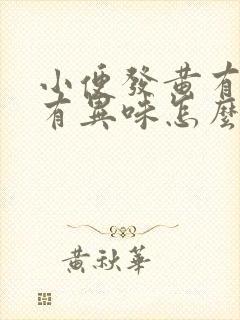 小便發黃有
有異味怎麼
黃秋華